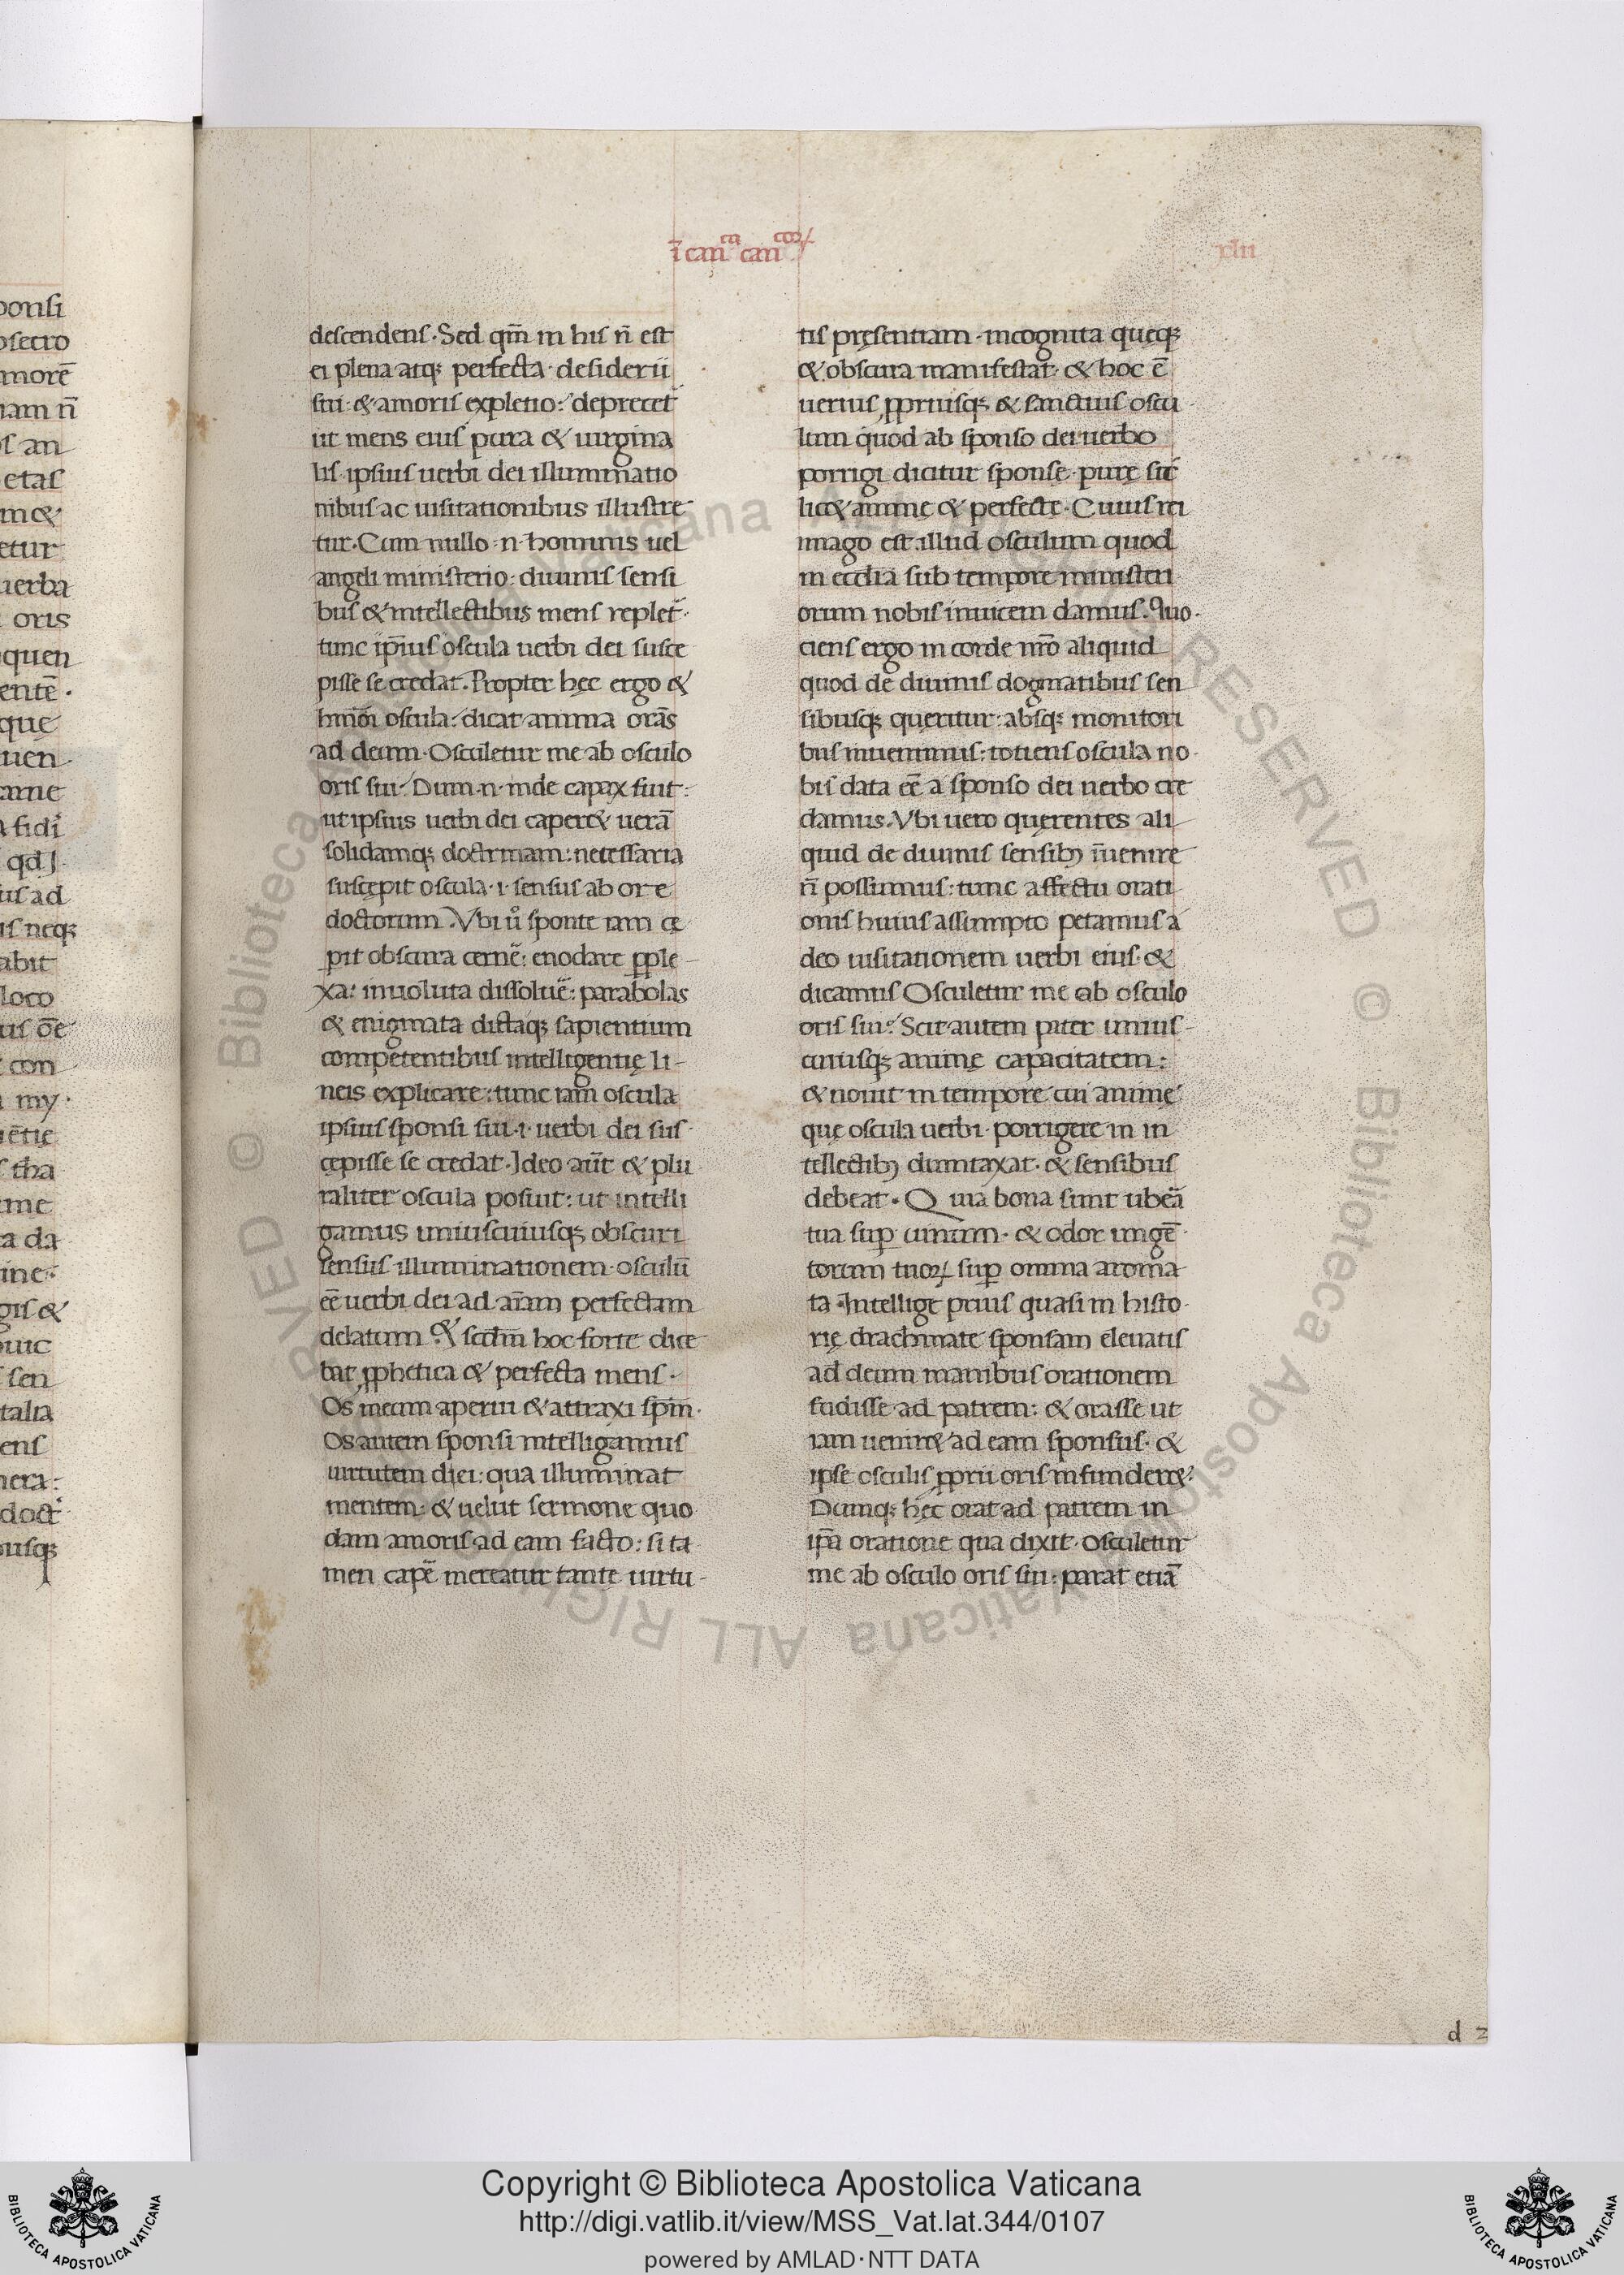 ī can^ca can^cooꝝ
xlii
descendens. Sed qm̄ in his n̄ est
ei plena atqꝫ perfecta desiderii
sui: & amoris expletio: deprecet̄
ut mens eius pura & uirgina
lis ipsius uerbi dei illuminatio
nibus ac uisitationibus illustre
tur. Cum nullo .n. hominis uel
angeli ministerio: diuinis sensi
bus & intellectibus mens replet̄.
tunc ip̄ius oscula uerbi dei susce
pisse se credat. Propter hęc ergo &
hmōi oscula: dicat anima orās
ad deum. Osculetur me ab osculo
oris sui. Dum .n. inde capax fuit:
ut ipsius uerbi dei caper& uerā
solidamqꝫ doctrinam: necessaria
suscępit oscula .i. sensus ab ore
doctorum. Vbi u̾o sponte iam cę
pit obscura cernē: enodare ꝑple
xa: inuoluta dissoluē: parabolas
& enigmata dictaqꝫ sapientium
competentibus intelligentię li-
neis explicare: tunc iam oscula
ipsius sponsi sui .i. uerbi dei sus
cępisse se credat. Ideo aūt & plu
raliter oscula posuit: ut intelli
gamus uniuscuiusqꝫ obscuri
sensus illuminationem osculū
eē uerbi dei ad aīam perfectam
delatum. & scdm̄ hoc forte dice
bat ꝓphetica & perfecta mens.
Os meum aperui & attraxi spm̄.
Os autem sponsi intelligamus
uirtutem diei: qua illuminat
mentem: & uelut sermone quo
dam amoris ad eam facto: si ta
men capē mereatur tante uirtu-
tis pręsentiam. incognita quęqꝫ
& obscura manifestat. & hoc ē
uerius ꝓpriusqꝫ & sanctius oscu
lum quod ab sponso dei uerbo
porrigi dicitur sponsę purę sci
lic& animę & perfectę. Cuius rei
imago est illud osculum quod
in ecclīa sub tempore ministeri
orum nobis inuicem damus. Quo
ciens ergo in corde nrō aliquid
quod de diuinis dogmatibus sen
sibusqꝫ queritur: absqꝫ monitori
bus inuenimus: totiens oscula no
bis data eē a sponso dei uerbo cre
damus. Vbi uero quęrentes ali
quid de diuinis sensibꝫ īuenire
n̄ possumus: tunc affectu orati
onis huius assumpto petamus a
deo uisitationem uerbi eius. &
dicamus Osculetur me ab osculo
oris sui. Scit autem pater unius-
cuiusqꝫ animę capacitatem:
& nouit in tempore cui animę
quę oscula uerbi porrigere in in
tellectibꝫ dumtaxat. & sensibus
debeat. Quia bona sunt ubeā
tua suꝑ uinum. & odor ungē
torum tuoꝝ suꝑ omnia aroma
ta. Intellige prius quasi in histo
rię drachmate sponsam eleuatis
ad deum manibus orationem
fudisse ad patrem: & orasse ut
iam uenir& ad eam sponsus. &
ipse osculis ꝓprii oris infunder&.
Dumqꝫ hęc orat ad patrem in
ip̄a oratione qua dixit. Osculetur
me ab osculo oris sui: parat etiā
d 2
ponsi
etas
uerba
oris
quen
que
uen
a fidi
us ad
is neqꝫ
abit
loco
con
my
tha
me
a da
gis &
sen
talia
ens
Copyright © Biblioteca Apostolica Vaticana
http://digi.vatlib.it/view/MSS_Vat.lat.344/0107
powered by AMLAD·NTT DATA
BIBLIOTECA APOSTOLICA VATICANA
BIBLIOTECA APOSTOLICA VATICANA
© Biblioteca Apostolica Vaticana ALL RIGHTS RESERVED © Biblioteca Apostolica Vaticana ALL RIGHTS RESERVED